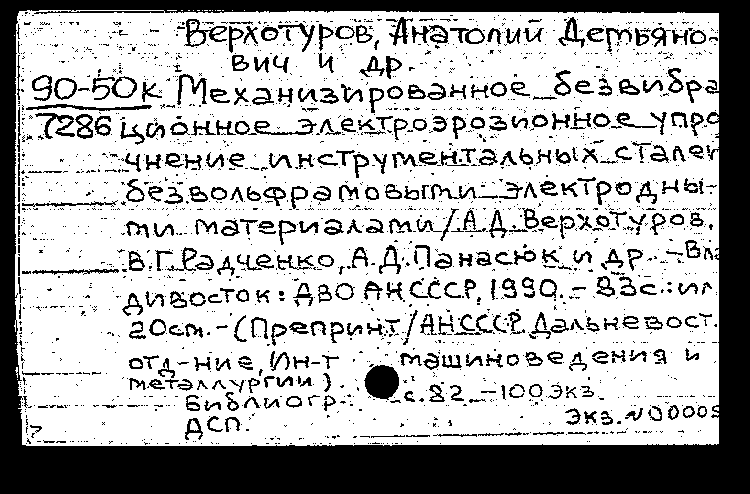 Верхотуров, Анатолий Демьяно-
вич и др.
90-50к Механизированное безвибра
7286 ционное электроэрозионное упро
чнение инструментальных сталей
безвольфрамовыми электродны-
ми материалами/А.Д.Верхотуров,
В.Г.Радченко, А.Д.Панасюк и др. - Вла
дивосток: ДВО АН СССР, 1990. - 83с.:ил
20см. - (Препринт/АН СССР. Дальневост.
отд-ние, Ин-т машиноведения и
металлургии).
Библиогр.: с.82. - 100 экз.
ДСП. Экз. N 00005